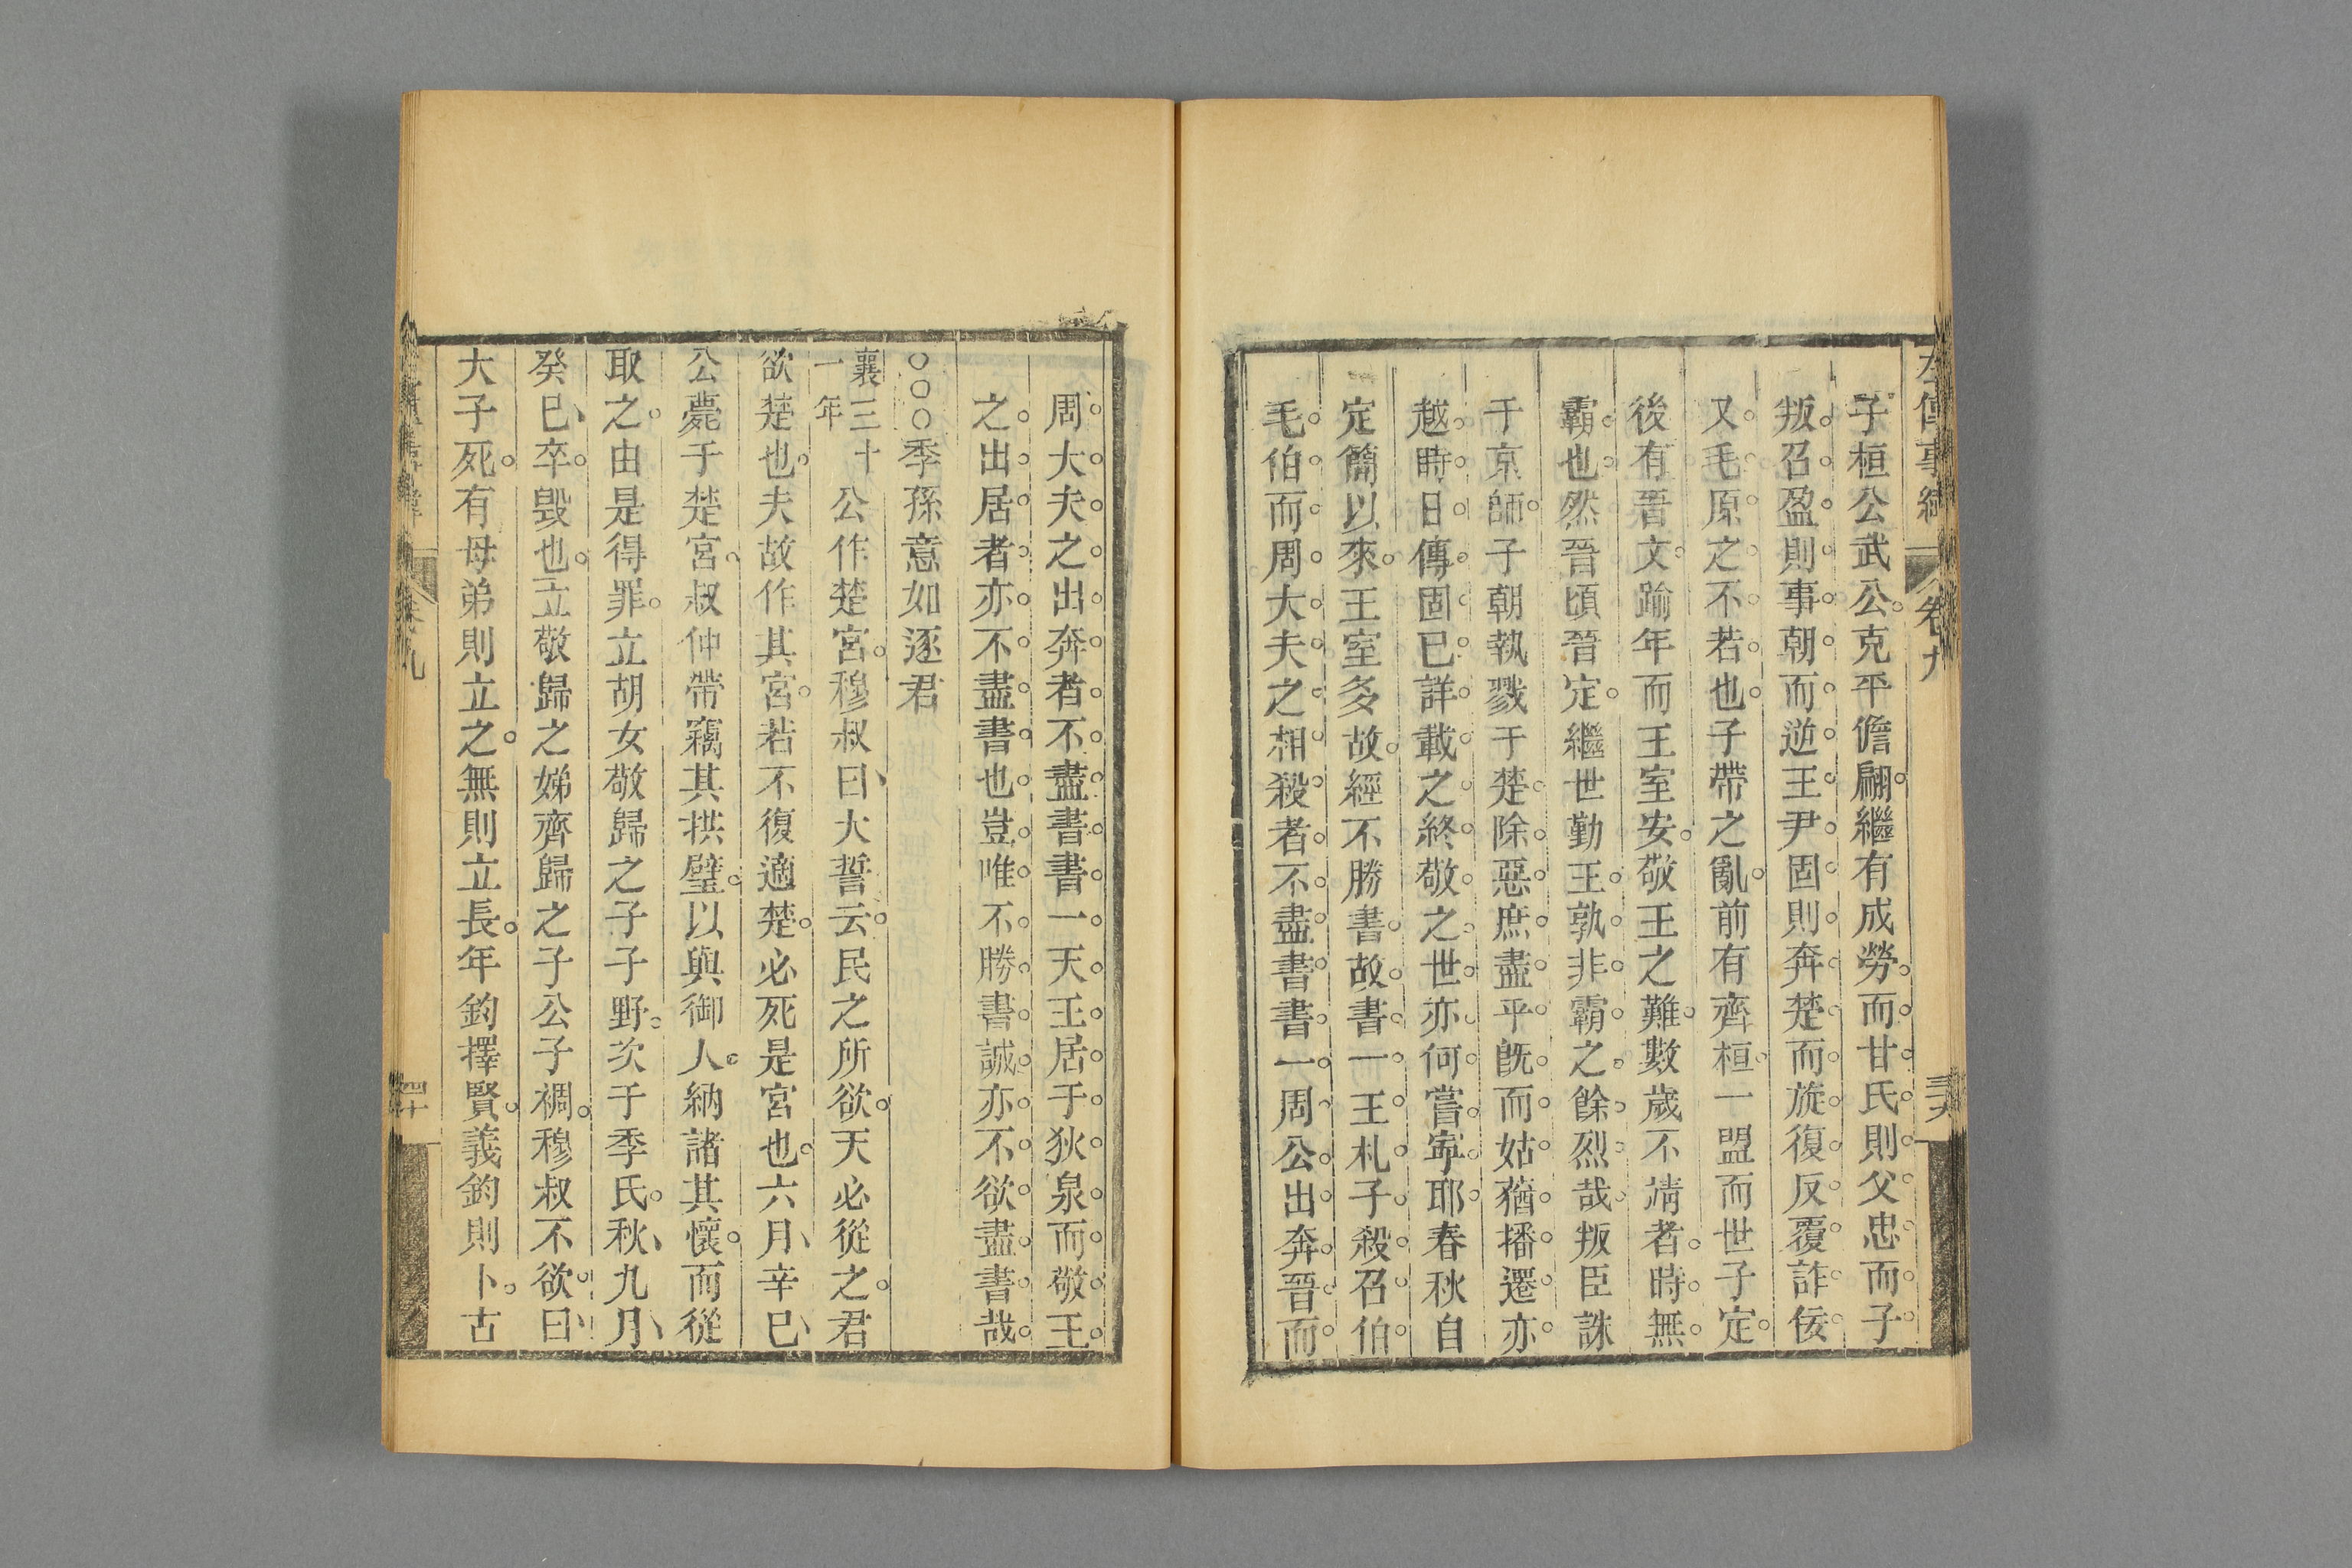 左傳事緯 卷九 三九
子桓公武公克平儋翩繼有成勞而甘氏則父忠而子
叛召盈則事朝而逆王尹固則奔楚而旋復反覆詐佞
又毛原之不若也子帶之亂前有齊桓一盟而世子定
後有晉文踰年而王室安敬王之難數歲不靖者時無
霸也然晉頃晉定繼世勤王孰非霸之餘烈哉叛臣誅
于京師子朝執戮于楚除惡庶盡乎旣而姑蕕播遷亦
越時日傳固已詳載之終敬之世亦何嘗寧耶春秋自
定簡以來王室多故經不勝書故書一王札子殺召伯
毛伯而周大夫之相殺者不盡書書一周公出奔晉而
周大夫之出奔者不盡書書一天王居于狄泉而敬王
之出居者亦不盡書也豈唯不勝書誠亦不欲盡書哉
○○○季孫意如逐君
襄三十一年 公作楚宮穆叔曰大誓云民之所欲天必從之君
欲楚也夫故作其宮若不復適楚必死是宮也六月辛巳
公薨于楚宮叔仲帶竊其拱璧以與御人納諸其懷而從
取之由是得罪立胡女敬歸之子子野次于季氏秋九月
癸巳卒毀也立敬歸之娣齊歸之子公子裯穆叔不欲曰
大子死有母弟則立之無則立長年鈞擇賢義鈞則卜古
卷九 四十